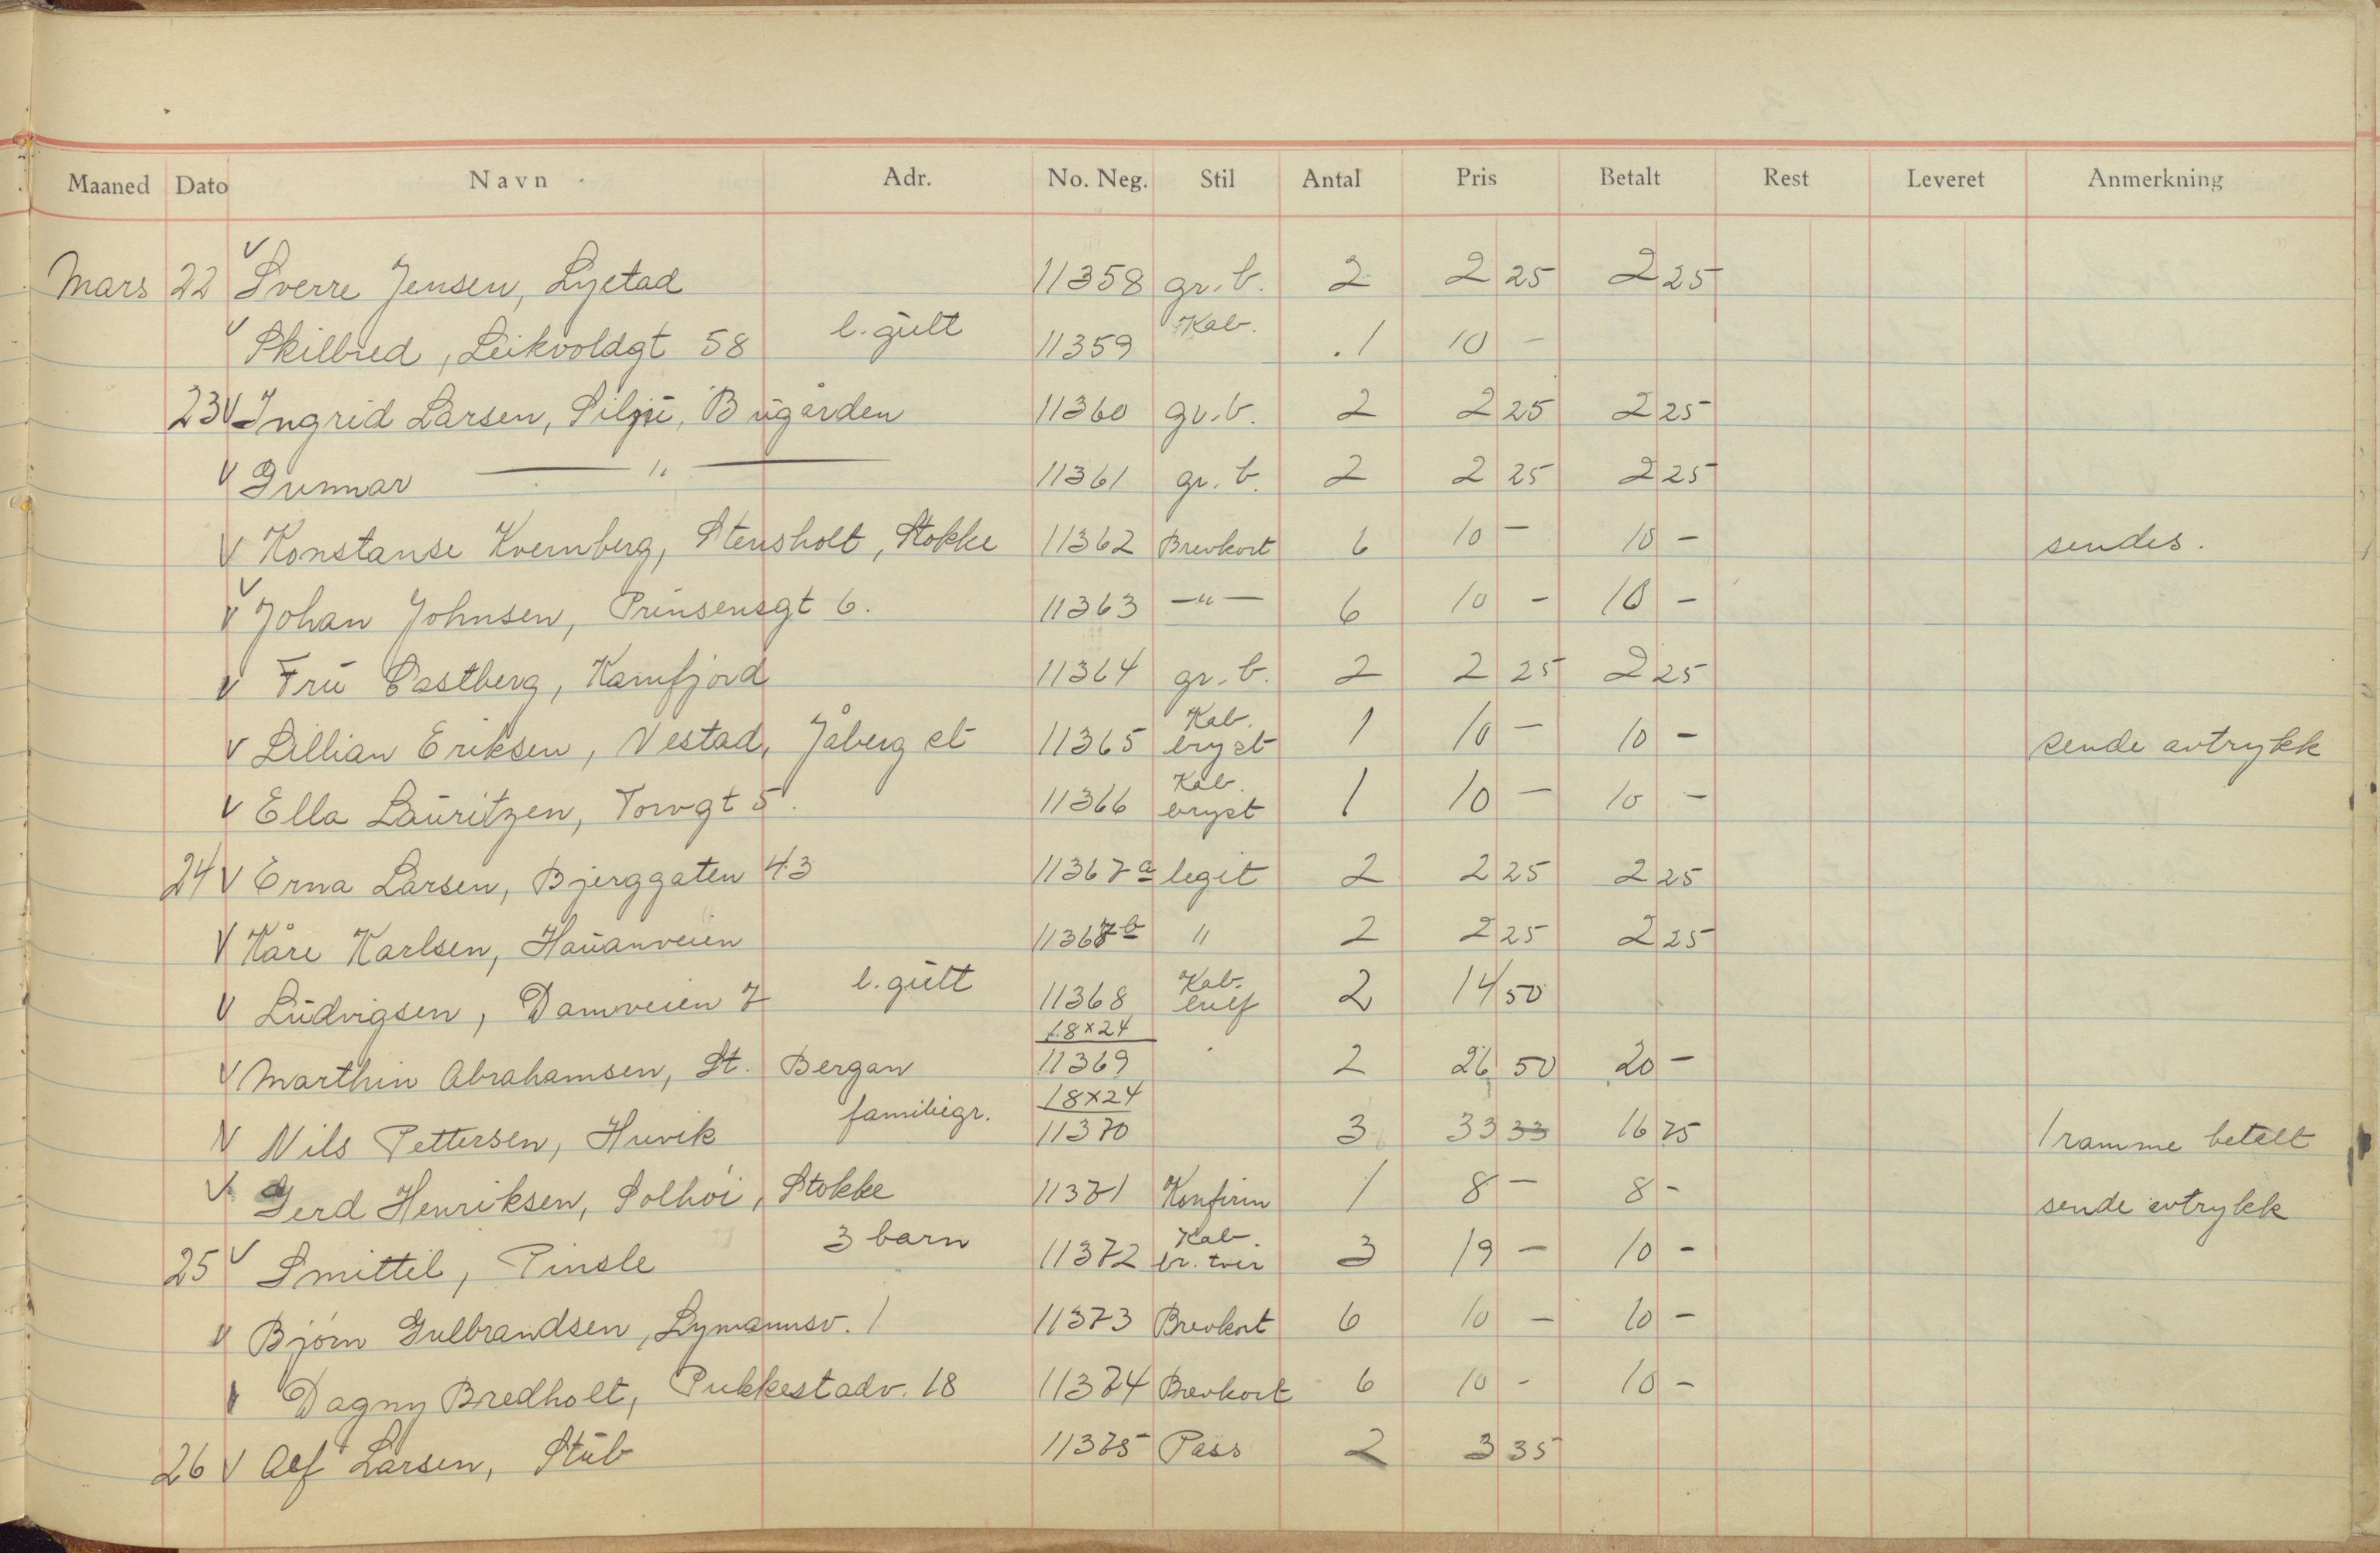 Maaned Dato Navn Adr. No. Neg. Stil Antal Pris Betalt Rest Leveret Anmerkning
Mars 22 V Sverre Jensen, Lystad 11358 gr. b. 2 2 25 2 25
V Skilbred, Leikvoldgt 58 l. gutt 11359 Kab. 1 10 -
23 V Ingrid Larsen, Silju, Bugården 11360 gr. b. 2 2 25 2 25
V Gunnar — " — 11361 gr. b. 2 2 25 2 25
V Konstanse Kvernberg, Stensholt, Stokke 11362 Brevkort 6 10 - 10 - sendes.
V Johan Johnsen, Prinsensgt 6. 11363 — " — 6 10 - 10 -
V Fru Castberg, Kamfjord 11364 gr. b. 2 2 25 2 25
V Lillian Eriksen, Vestad, Jåberg st 11365 Kab. bryst 1 10 - 10 - sende avtrykk
V Ella Lauritzen, Torvgt 5. 11366 Kab. bryst 1 10 - 10 -
24 V Erna Larsen, Bjerggaten 43 11367 a legit 2 2 25 2 25
V Kåre Karlsen, Hauanveien 11367 b " 2 2 25 2 25
V Ludvigsen, Damveien 7 l. gutt 11368 Kab. 2 14 50
18×24
V Marthin Abrahamsen, St. Bergan 11369 2 26 50 20 -
18×24
V Nils Pettersen, Huvik familiegr. 11370 3 33 33 16 75 1 ramme betalt
V Gerd Henriksen, Solhöi, Stokke 11371 Konfirm 1 8 - 8 - sende avtrykk
25 V Smittil, Pinsle 3 barn 11372 Kab. br. tvis 3 19 - 10 -
V Bjørn Gulbrandsen, Lymannsv. 1 11373 Brevkort 6 10 - 10 -
V Dagny Bredholt, Pukkestadv. 18 11374 Brevkort 6 10 - 10 -
26 V Alf Larsen, Stub 11375 Pass 2 3 35